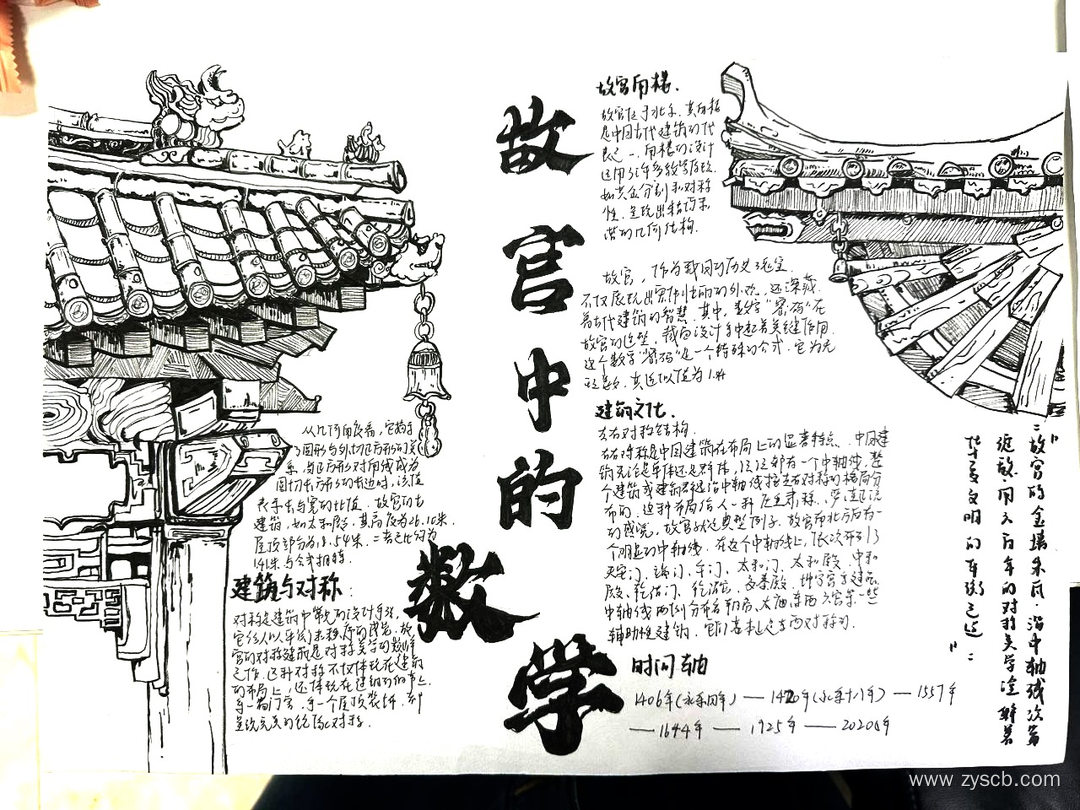 故宫中的数学
故宫用楼.
故宫位于北京,其角楼
是中国古代建筑的代
表之一.角楼的设计
运用了许多数学原理.
如黄金分割和对称
性.呈现出精巧和
谐的几何结构.
故宫,作为我国的历史瑰宝.
不仅展现出宏伟壮丽的外观,还深藏
着古代建筑的智慧.其中,数字"密码"在
故宫的造型,截面设计当中起着关键作用.
这个数字"密码"是一个特殊的公式,它为无
理数,其近似值为1.41
建筑文化.
左右对称结构.
左右对称是中国建筑在布局上的显著特点.中国建
筑无论是单体还是群体,往往都有一个中轴线,整
个建筑或建筑群沿中轴线按左右对称的格局分
布的.这种布局给人一种庄重肃穆、
的感觉.故宫就是典型例子.故宫南北方向有一
个明显的中轴线.在这个中轴线上,依次开了
天安门、端门、午门、太和门、太和殿、中和
殿、乾清门、乾清宫、交泰殿、坤宁宫等建筑
中轴线两侧分布着朝房、太庙东西六宫等一些
辅助性建筑,它们基本是东西对称的.
时间轴
1406年(永乐四年)—1420年(永乐十八年)—1557年
—1644年—1925年—2020年
从几何角度看,它揭示
了圆形与外切正方形的关
系,当正方形对角线成为
圆切长方形的长边时,该值
表示长与宽的比值.故宫的古
建筑,如太和殿,其高度为26.16米.
屋顶部分为18.54米.二者之比约为
1.41米与公式相符
建筑与对称:
对称是建筑中常见的设计手法,
它给人以平衡和秩序的感觉.故
宫的对称建筑是对称美学的巅峰
之作.这种对称不仅体现在建筑
的布局上,还体现在建筑的细节上.
每一扇门窗,每一个屋顶装饰,都
呈现完美的绝隐对称.
:"故宫的金墙朱瓦.沿中轴线次第
绽放.用六百年的对称美学诠释着
华夏文明的东张之道":
www.zyscb.com